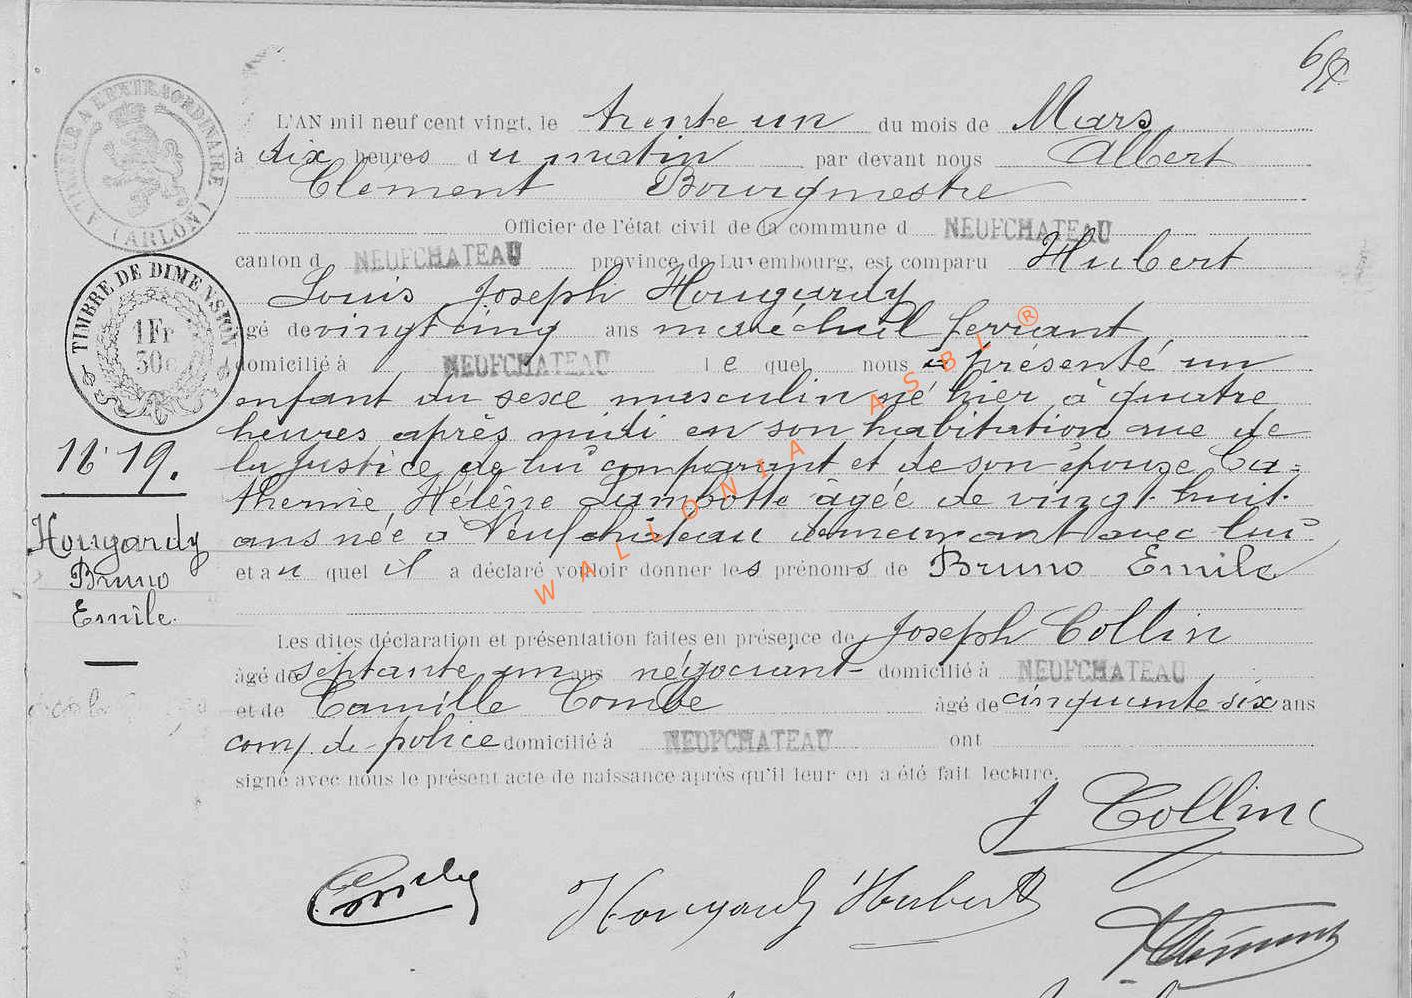 L'AN mil neuf cent vingt, le trente un du mois de Mars
à dix heures du matin par devant nous Albert
Clément Bourgmestre
Officier de l'état civil de la commune d NEUFCHATEAU
canton d NEUFCHATEAU province de Luxembourg, est comparu Hubert
Louis Joseph Hougardy
âgé de vingt cinq ans maréchal ferrant
domicilié à NEUFCHATEAU lequel nous a présenté un
enfant du sexe masculin né hier à quatre
heures après midi en son habitation rue de
la Justice de lui comparant et de son épouse Ca=
therine Hélène Lambotte âgée de vingt-huit
ans née à Neufchâteau demeurant avec lui
et auquel il a déclaré vouloir donner les prénoms de Bruno Emile
Les dites déclaration et présentation faites en présence de Joseph Collin
âgé de septante un ans négociant domicilié à NEUFCHATEAU
et de Camille Combe âgé de cinquante six ans
com. de police domicilié à NEUFCHATEAU ont
signé avec nous le présent acte de naissance après qu'il leur en a été fait lecture.
J Collin
Hougardy Hubert
AClément
TIMBRE A L'EXTRAORDINAIRE (ARLON)
TIMBRE DE DIMENSION
1Fr
30c
N° 19.
Hougardy
Bruno
Emile.
WALLONIA ASBL ®